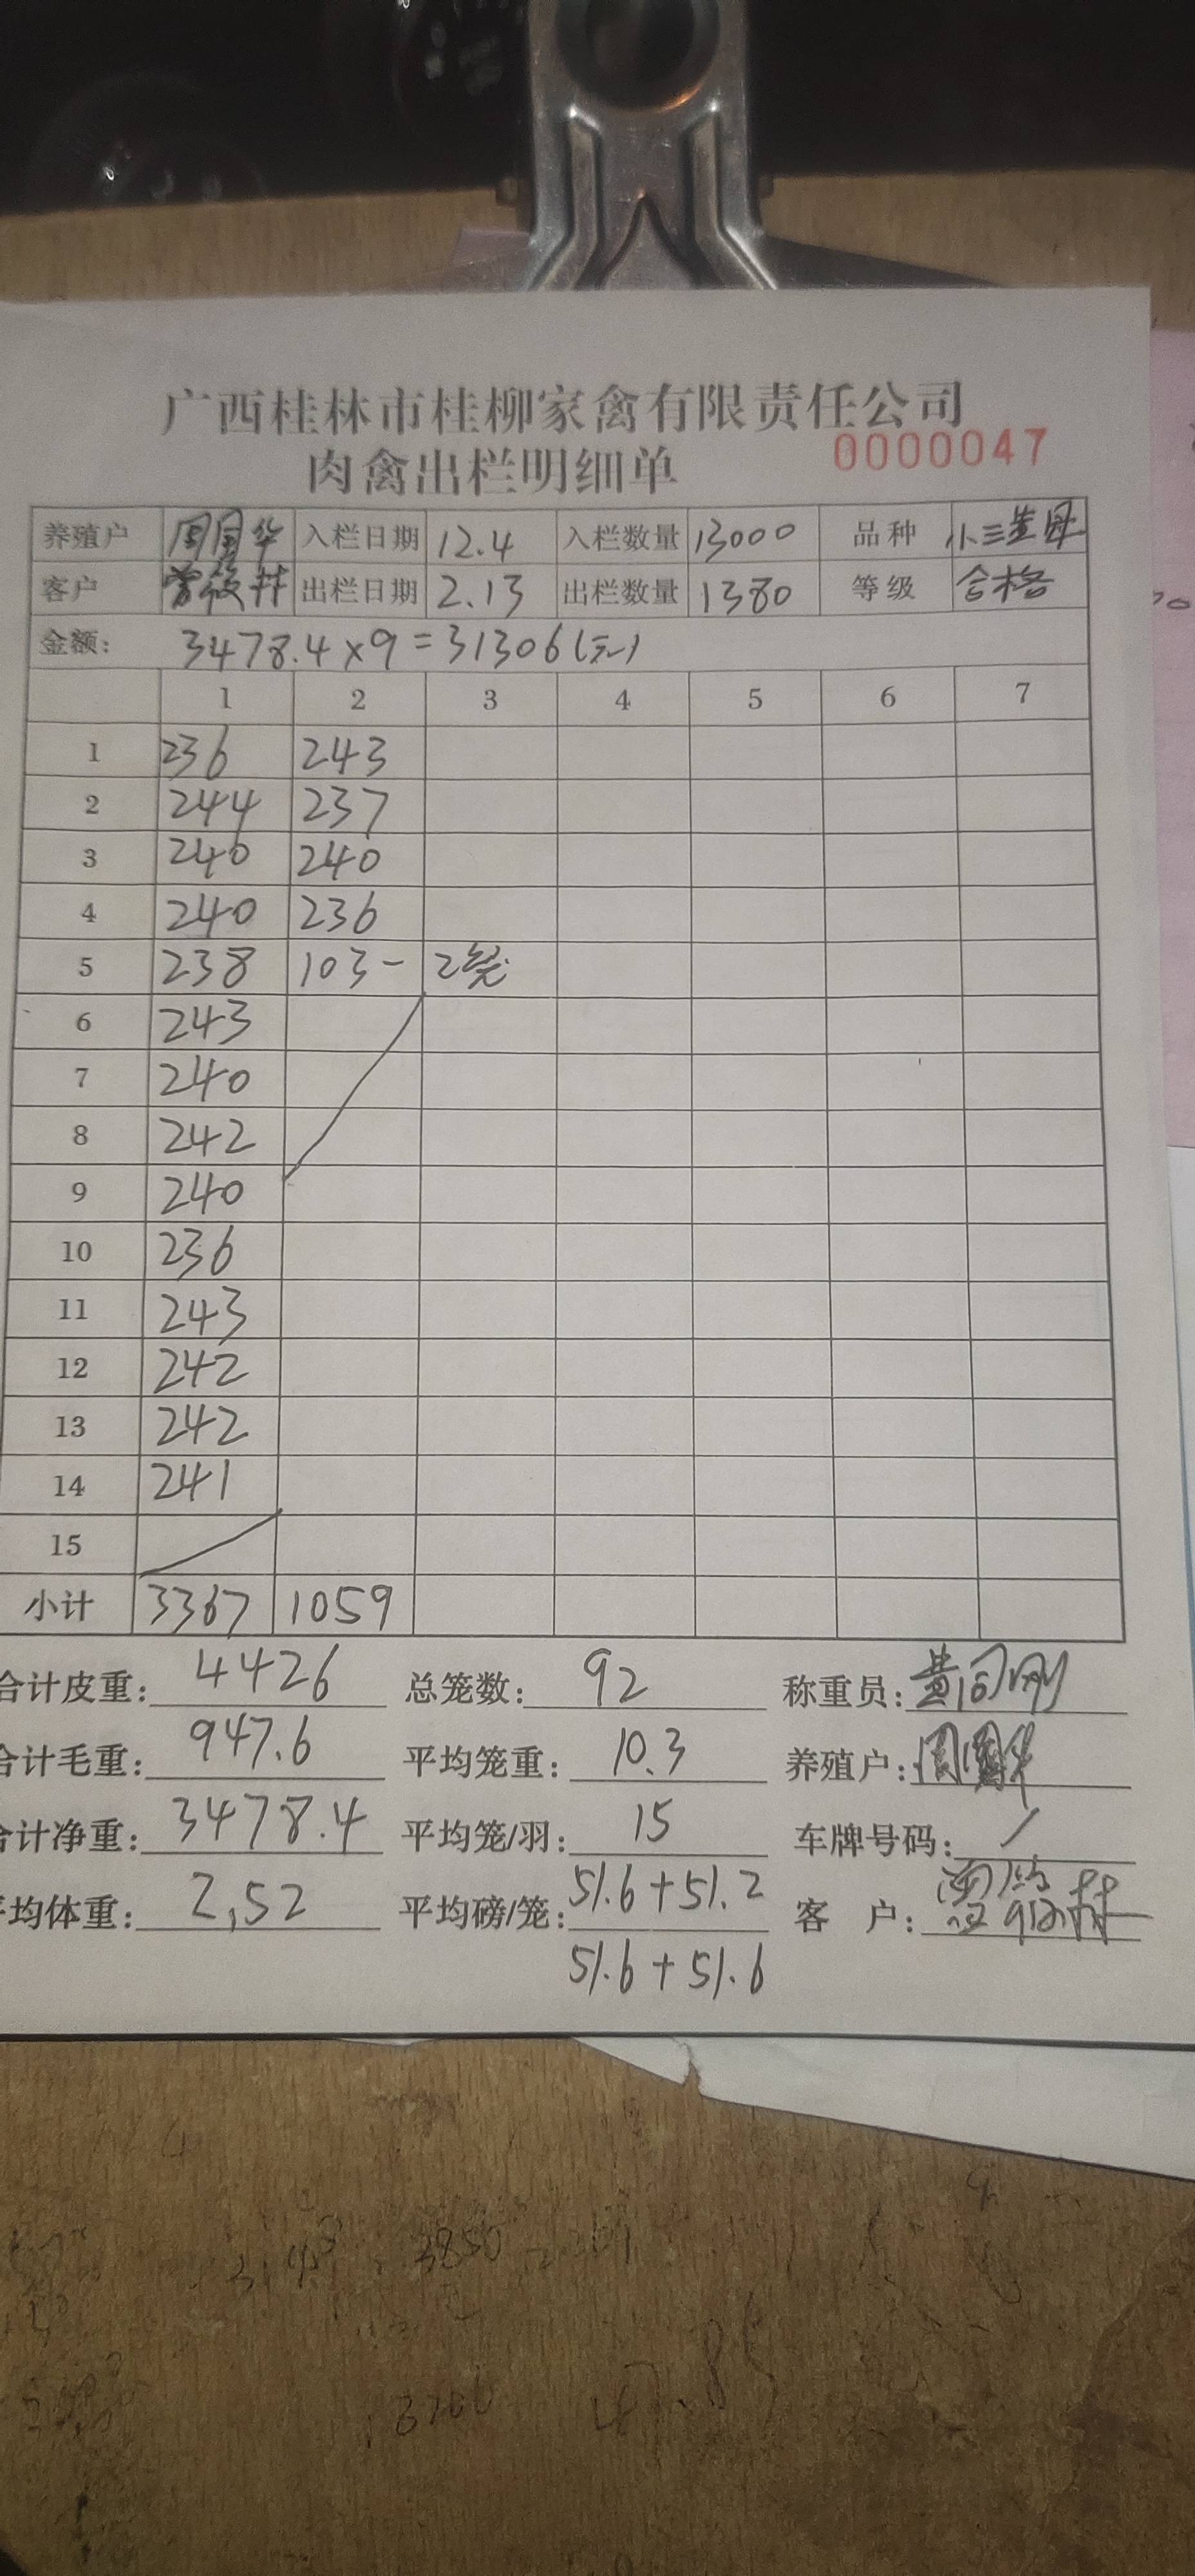 广西桂林市桂柳家禽有限责任公司
肉禽出栏明细单 0000047
养殖户 周国华 入栏日期 12.4 入栏数量 13000 品种 小三
客户 出栏日期 2.13 出栏数量 1380 等级 合格
金额: 3478.4×9=31306(元)
1 2 3 4 5 6 7
1 236 243
2 244 237
3 240 240
4 240 236
5 238 103- 2笼
6 243
7 240
8 242
9 240
10 236
11 243
12 242
13 242
14 241
15
小计 3367 1059
合计皮重: 4426 总笼数: 92 称重员: 黄
合计毛重: 947.6 平均笼重: 10.3 养殖户: 周国华
合计净重: 3478.4 平均笼/羽: 15 车牌号码: /
平均体重: 2,52 平均磅/笼: 51.6+51.2 客 户:
51.6+51.6